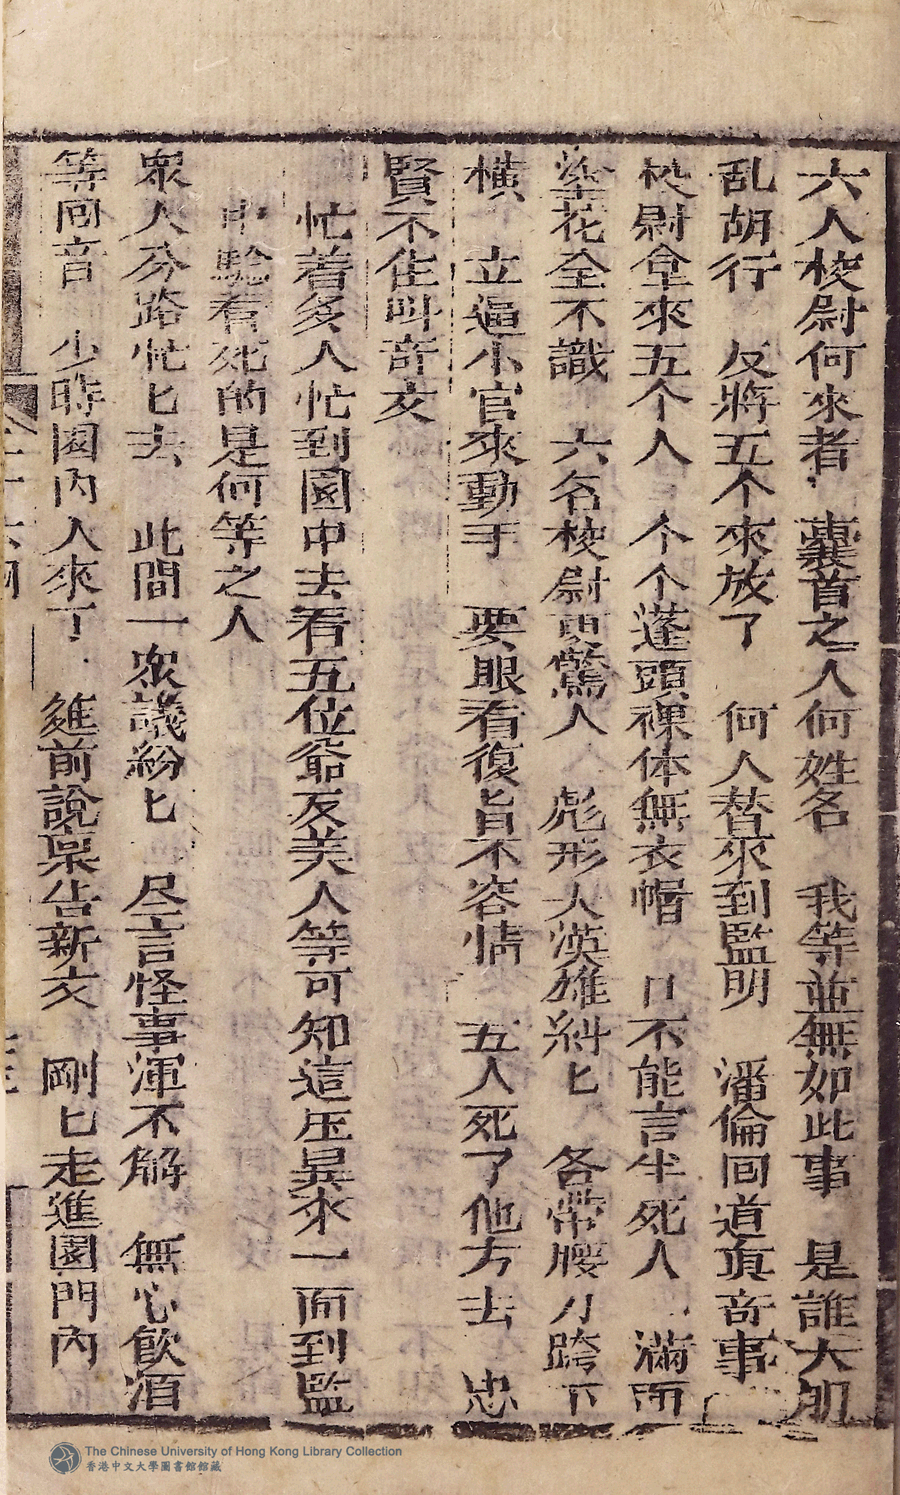 六人校尉何來者 囊首之人何姓名 我等並無如此事 是誰大胆
乱胡行 反將五个來放了 何人替來到監明 潘倫回道真奇事
校尉拿來五个人 个个蓬頭裸体無衣帽 口不能言半死人 滿面
塗花全不識 六名校尉更驚人 彪形大漢雄糾匕 各帶腰刀跨下
橫 立逼小官來動手 要眼看復旨不容情 五人死了他方去 忠
賢不住叫奇文
忙着多人忙到園中去看五位爺反美人等可知這压曻來一面到監
中騐看死的是何等之人
衆人分路忙匕去 此間一衆議紛匕 尽言怪事渾不解 無心飲酒
等回音 少時園内人來了 進前說禀告新文 剛匕走進園門内
The Chinese University of Hong Kong Library Collection
香港中文大學圖書館館藏